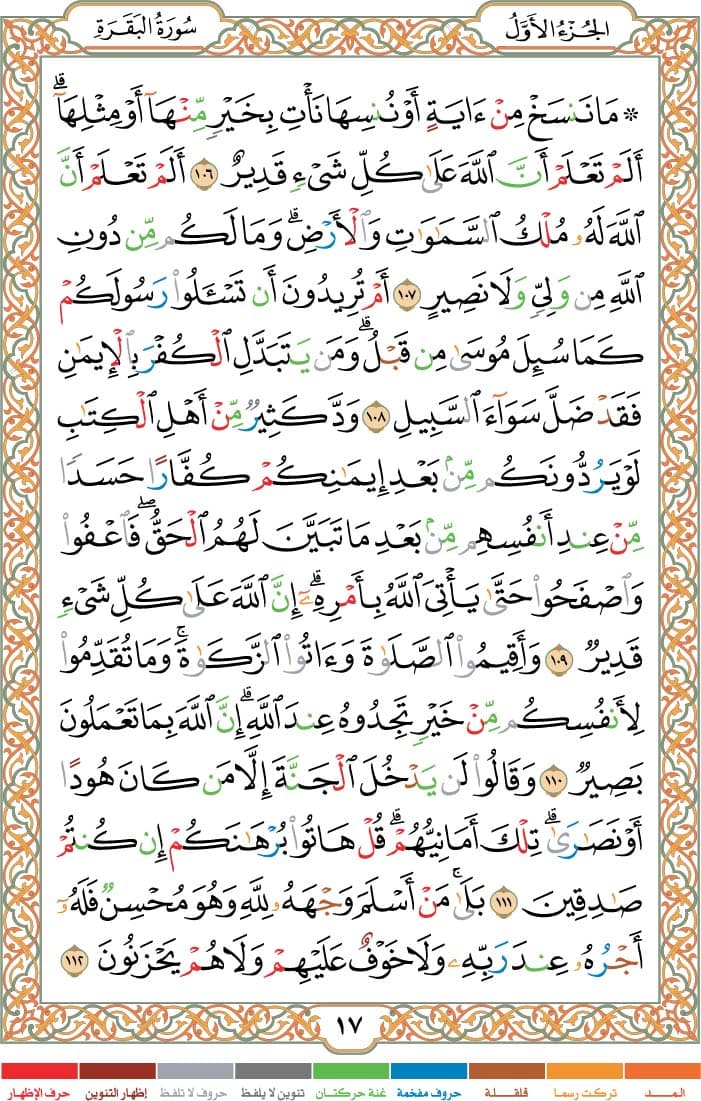 الجُزْءُ الأَوَّلُ
سُورَةُ البَقَرَةِ
* مَا نَنسَخْ مِنْ ءَايَةٍ أَوْ نُنسِهَا نَأْتِ بِخَيْرٍ مِّنْهَآ أَوْ مِثْلِهَآۗ
أَلَمْ تَعْلَمْ أَنَّ ٱللَّهَ عَلَىٰ كُلِّ شَىْءٍ قَدِيرٌ ١٠٦ أَلَمْ تَعْلَمْ أَنَّ
ٱللَّهَ لَهُۥ مُلْكُ ٱلسَّمَـٰوَٰتِ وَٱلْأَرْضِۗ وَمَا لَكُم مِّن دُونِ
ٱللَّهِ مِن وَلِىٍّ وَلَا نَصِيرٍ ١٠٧ أَمْ تُرِيدُونَ أَن تَسْـَٔلُوا۟ رَسُولَكُمْ
كَمَا سُئِلَ مُوسَىٰ مِن قَبْلُۗ وَمَن يَتَبَدَّلِ ٱلْكُفْرَ بِٱلْإِيمَـٰنِ
فَقَدْ ضَلَّ سَوَآءَ ٱلسَّبِيلِ ١٠٨ وَدَّ كَثِيرٌ مِّنْ أَهْلِ ٱلْكِتَـٰبِ
لَوْ يَرُدُّونَكُم مِّنۢ بَعْدِ إِيمَـٰنِكُمْ كُفَّارًا حَسَدًا
مِّنْ عِندِ أَنفُسِهِم مِّنۢ بَعْدِ مَا تَبَيَّنَ لَهُمُ ٱلْحَقُّۖ فَٱعْفُوا۟
وَٱصْفَحُوا۟ حَتَّىٰ يَأْتِىَ ٱللَّهُ بِأَمْرِهِۦٓۗ إِنَّ ٱللَّهَ عَلَىٰ كُلِّ شَىْءٍ
قَدِيرٌ ١٠٩ وَأَقِيمُوا۟ ٱلصَّلَوٰةَ وَءَاتُوا۟ ٱلزَّكَوٰةَۚ وَمَا تُقَدِّمُوا۟
لِأَنفُسِكُم مِّنْ خَيْرٍ تَجِدُوهُ عِندَ ٱللَّهِۗ إِنَّ ٱللَّهَ بِمَا تَعْمَلُونَ
بَصِيرٌ ١١٠ وَقَالُوا۟ لَن يَدْخُلَ ٱلْجَنَّةَ إِلَّا مَن كَانَ هُودًا
أَوْ نَصَـٰرَىٰۗ تِلْكَ أَمَانِيُّهُمْۗ قُلْ هَاتُوا۟ بُرْهَـٰنَكُمْ إِن كُنتُمْ
صَـٰدِقِينَ ١١١ بَلَىٰۚ مَنْ أَسْلَمَ وَجْهَهُۥ لِلَّهِ وَهُوَ مُحْسِنٌ فَلَهُۥٓ
أَجْرُهُۥ عِندَ رَبِّهِۦ وَلَا خَوْفٌ عَلَيْهِمْ وَلَا هُمْ يَحْزَنُونَ ١١٢
١٧
المـــد تركت رسما قلقـلة حروف مفخمة غنة حركتان تنوين لا يلفظ حروف لا تلفظ إظهار التنوين حرف الإظهار